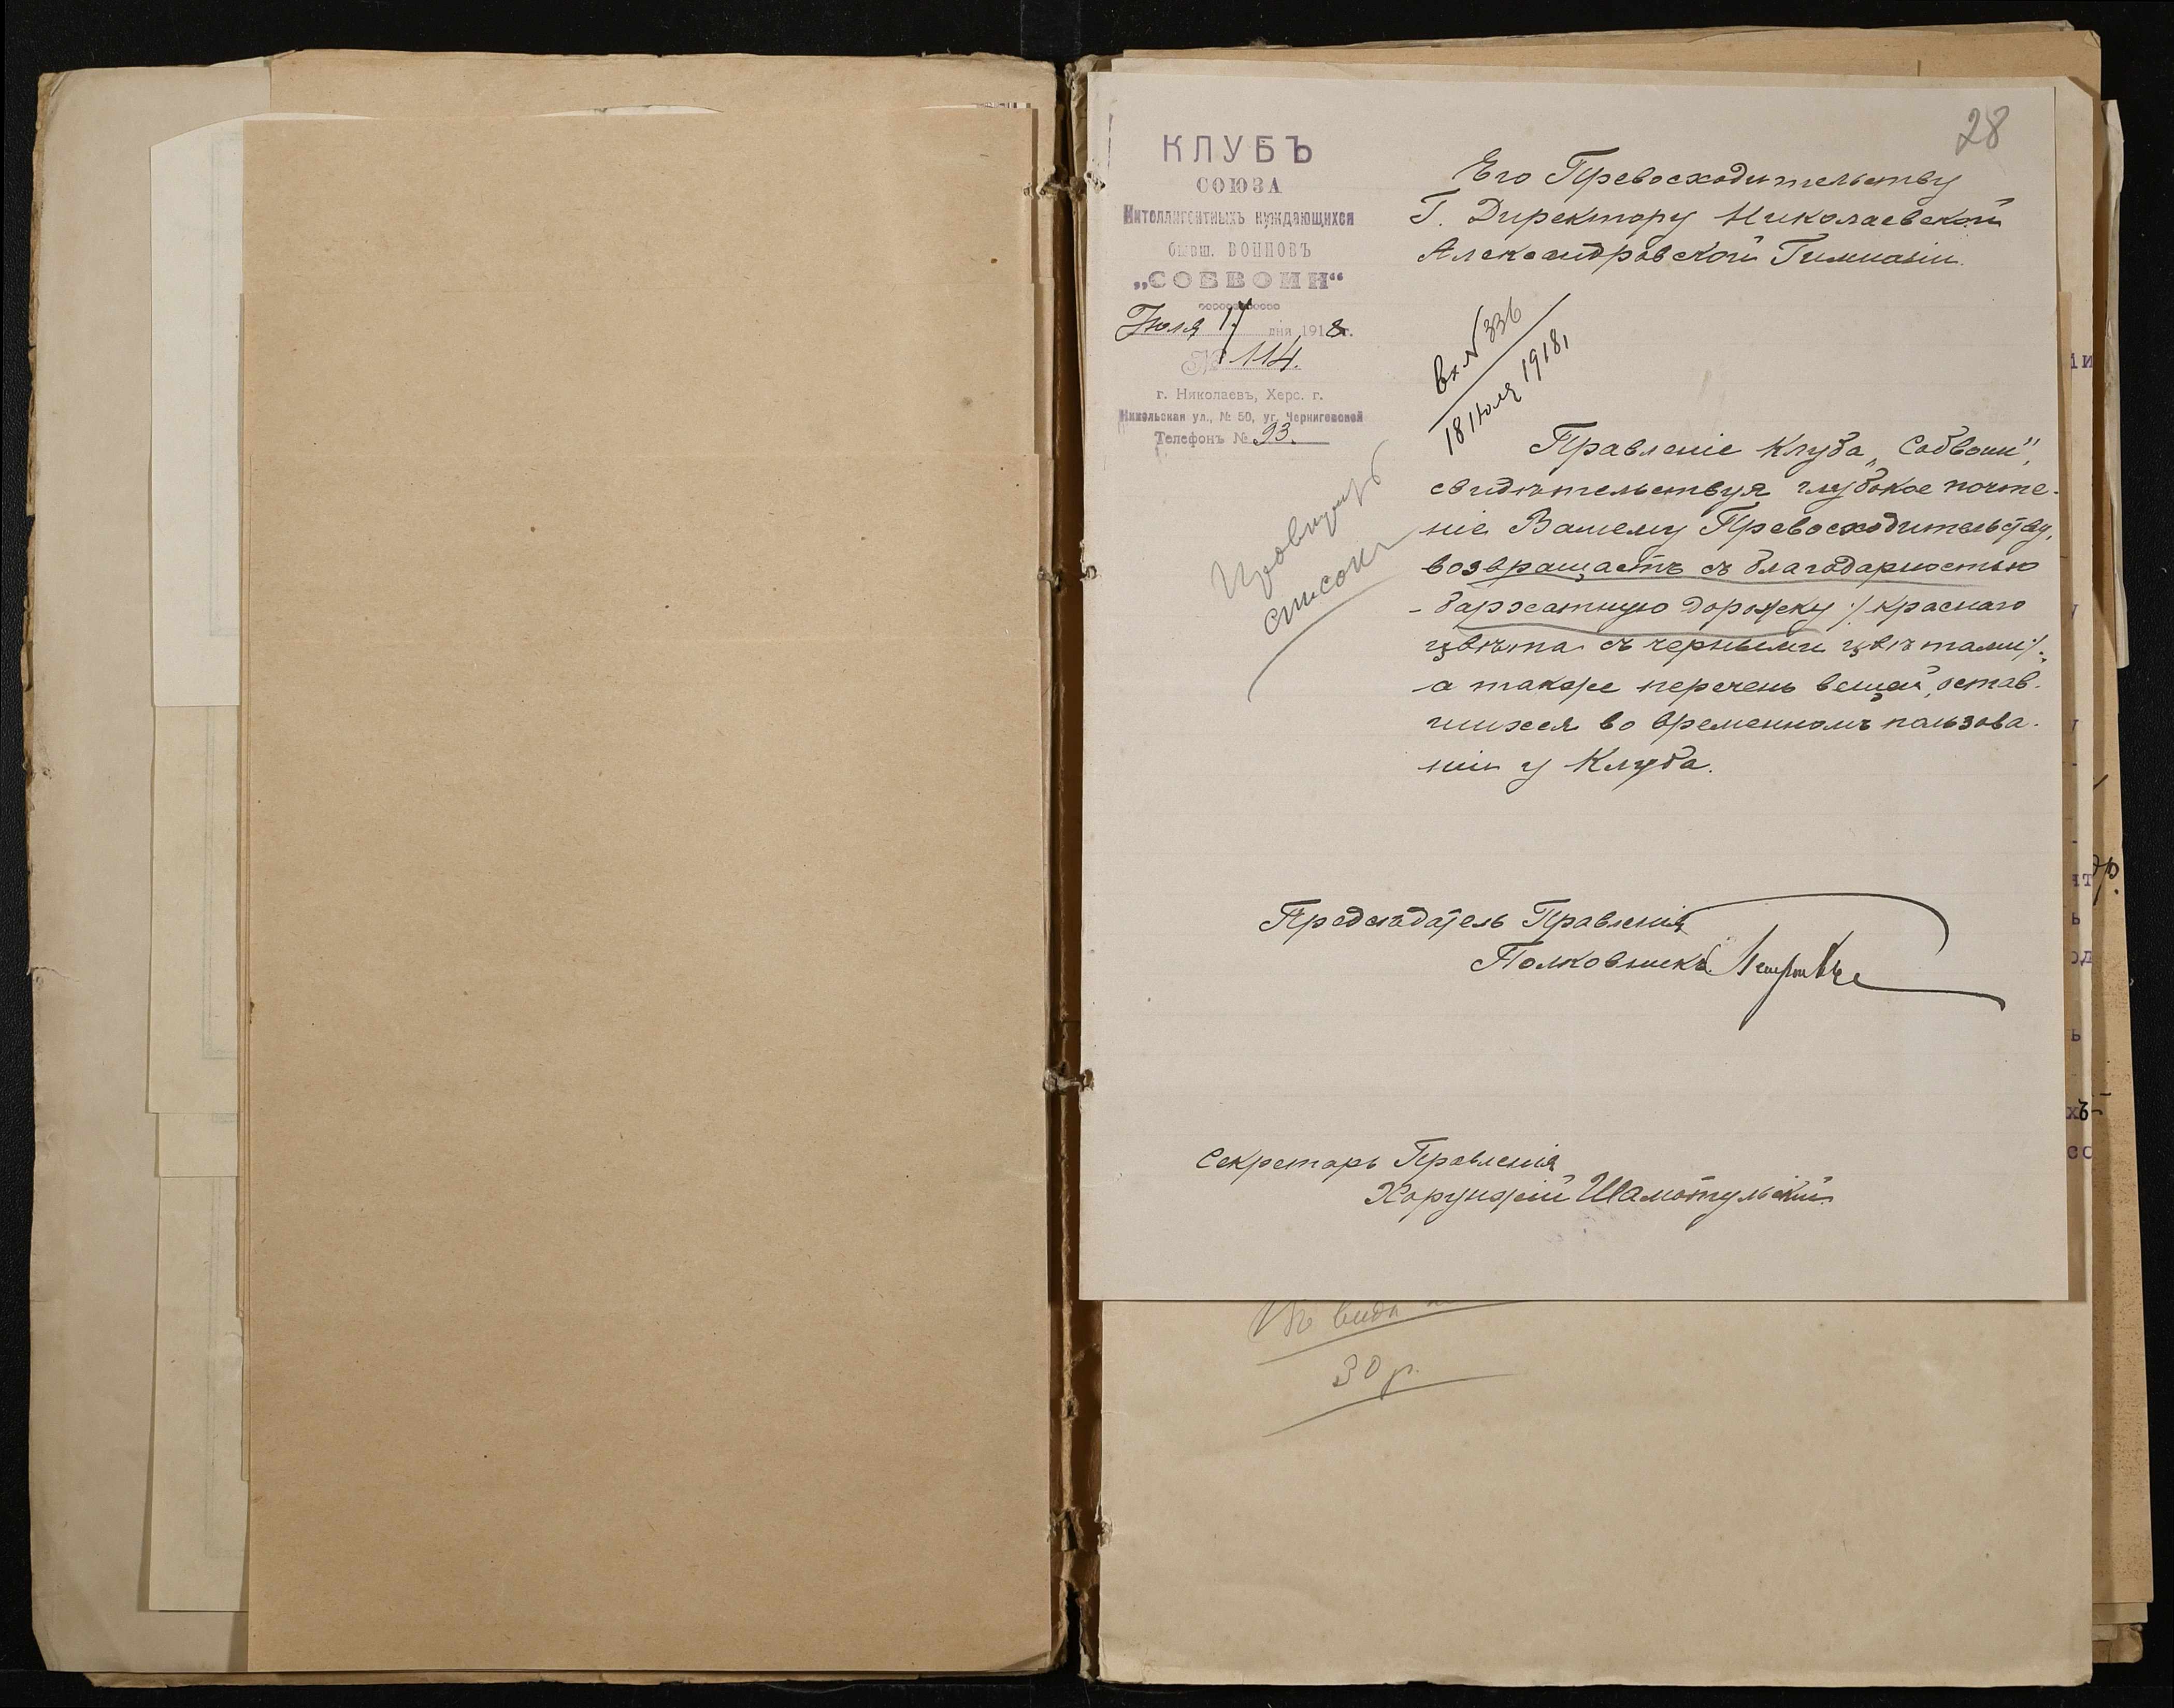 28
КЛУБЪ
СОЮЗА
Интеллигентныхъ нуждающихся
бывш. ВОИНОВЪ
„СОБВОИН“
Іюля 17 дня 1918 г.
№ 114.
г. Николаевъ, Херс. г.
Никольская ул., № 50, уг. Черниговской
Телефонъ № 93.
Его Превосходительству
Г. Директору Николаевской
Александровской Гимназіи.
Вх. № 336
18 Іюля 1918,
список
Правленіе Клуба „Собвоин",
свидѣтельствуя глубокое почте-
ніе Вашему Превосходительству,
возвращаетъ съ благодарностью
- бархатную дорожку /: краснаго
цвѣта съ черными цвѣтами :/,
а также перечень вещей, остав-
шихся во временномъ пользова-
ніи у Клуба.
Предсѣдатель Правленія
Полковникъ
Секретарь Правленія
Хорунжій Шамотульскій
30 р.